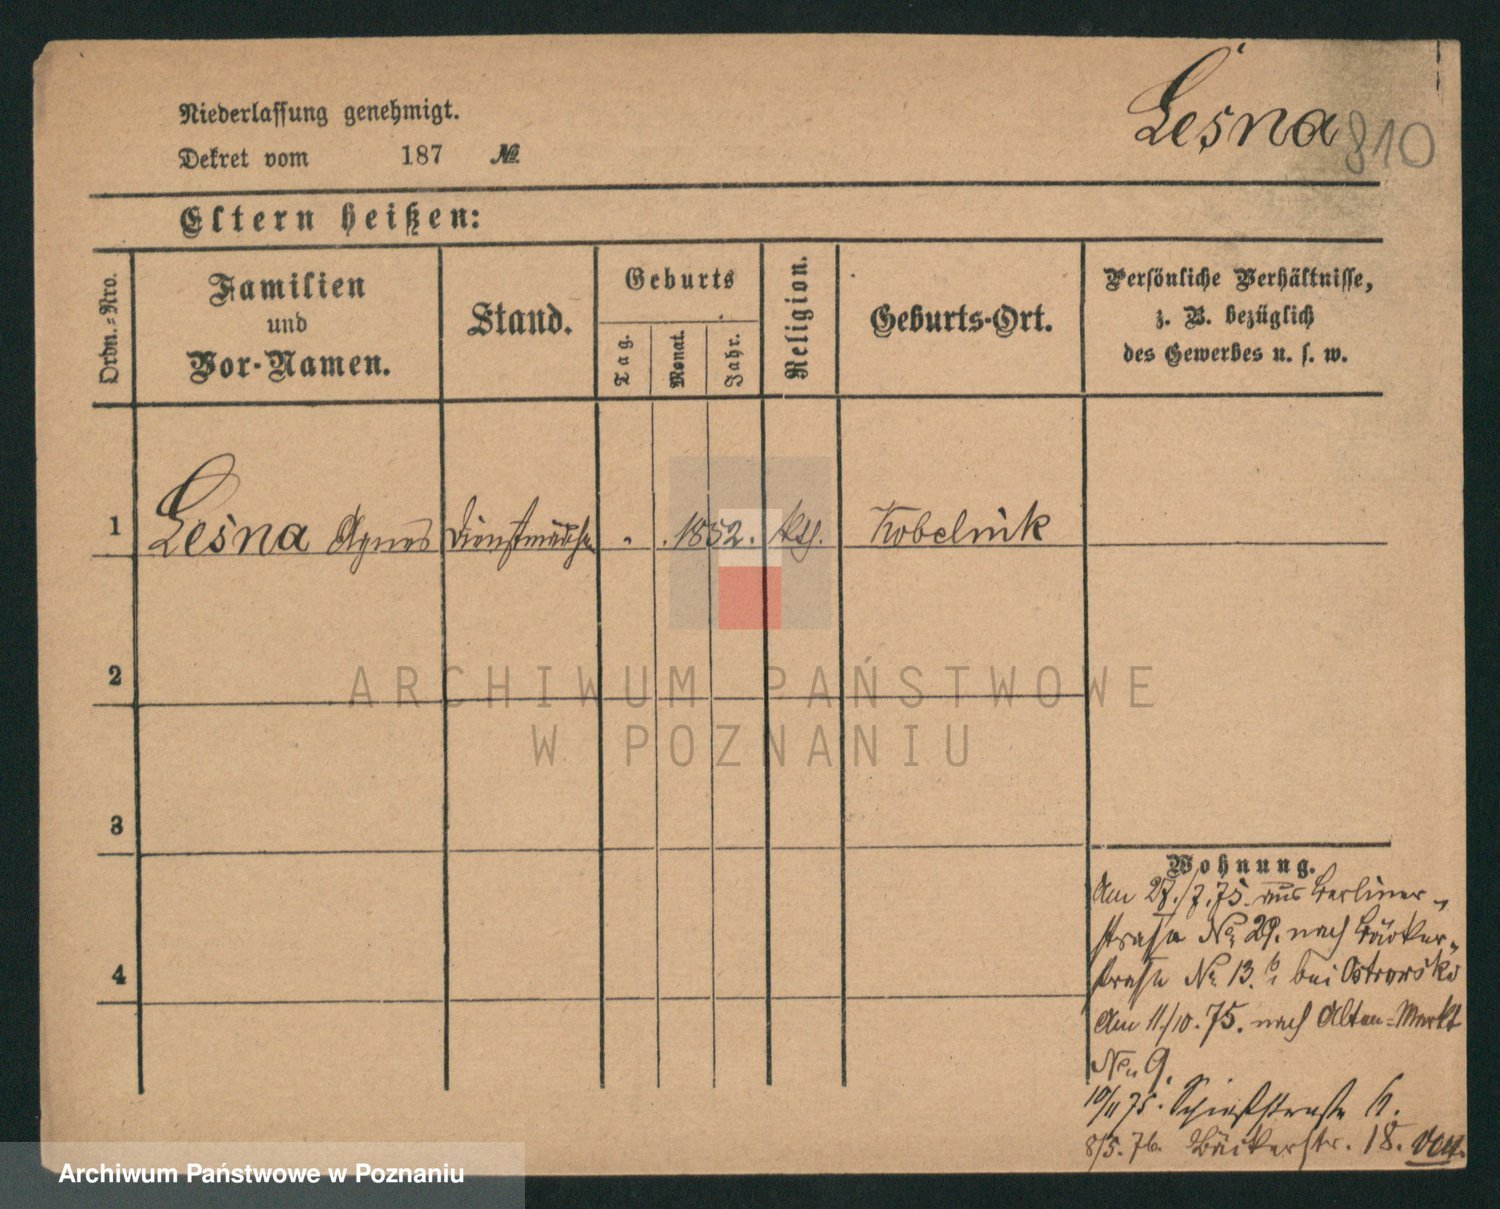 Lesna 810
Niederlassung genehmigt.
Dekret vom 187 №
Eltern heißen:
Ordn.=Nro.
Familien
und
Vor-Namen.
Stand.
Geburts
Tag.
Monat.
Jahr.
Religion.
Geburts-Ort.
Persönliche Verhältnisse,
z. B. bezüglich
des Gewerbes u. s. w.
1 Lesna Agnes Dienstmädch. 1852. kth. Kobelnik
2
ARCHIWUM PAŃSTWOWE
W POZNANIU
3
Wohnung.
Am 27./7.75. aus Berliner-
straße No 29. nach Bäcker-
straße No 13. bei Ostrowski
4
Am 11/10.75. nach Alten-Markt
No 9.
10/11 75. Schießstraße 6.
8/5.76. Bäckerstr. 18.
Archiwum Państwowe w Poznaniu